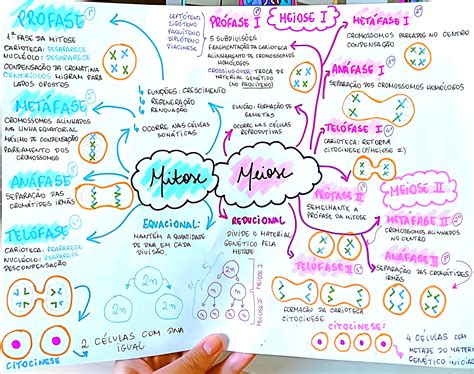 PRÓFASE
1ª FASE DA MITOSE
CARIOTECA: DESAPARECE
NUCLÉOLO: DESAPARECE
CONDENSAÇÃO DA CROMATINA
CENTRÍOLOS MIGRAM PARA
LADOS OPOSTOS
METÁFASE
CROMOSSOMOS ALINHADOS
NA LINHA EQUATORIAL
MÁXIMO DE COMPACTAÇÃO
DOS CROMOSSOMOS
ANÁFASE
SEPARAÇÃO DAS
CROMÁTIDES IRMÃS
TELÓFASE
CARIOTECA: REAPARECE
NUCLÉOLO: REAPARECE
DESCOMPACTAÇÃO
CITOCINESE
2 CÉLULAS COM DNA
IGUAL
FUNÇÕES: CRESCIMENTO
REGENERAÇÃO
RENOVAÇÃO
OCORRE NAS CÉLULAS
SOMÁTICAS
Mitose
EQUACIONAL:
MANTÉM A QUANTIDADE
DE DNA EM CADA
DIVISÃO.
2n
2n
2n
LEPTÓTENO
ZIGÓTENO
PAQUÍTENO
DIPLÓTENO
DIACINESE
PRÓFASE I
MEIOSE I
5 SUBDIVISÕES
FRAGMENTAÇÃO DA CARIOTECA
ALINHAMENTO DE CROMOSSOMOS
HOMÓLOGOS
CROSSING-OVER: TROCA DE
MATERIAL GENÉTICO
(NO PAQUÍTENO)
FUNÇÃO: FORMAÇÃO DE
GAMETAS
OCORRE NAS CÉLULAS
REPRODUTIVAS
Meiose
REDUCIONAL
DIVIDE O MATERIAL
GENÉTICO PELA
METADE
2n
MEIOSE I
MEIOSE II
METÁFASE I
CROMOSSOMOS PAREADOS NO CENTRO
ANÁFASE I
SEPARAÇÃO DOS CROMOSSOMOS HOMÓLOGOS
TELÓFASE I
CARIOTECA: RETORNA
CITOCINESE (1ª MEIOSE I)
MEIOSE II
PRÓFASE II
SEMELHANTE A
PRÓFASE DA MITOSE
METÁFASE II
CROMOSSOMOS ALINHADOS
NO CENTRO
ANÁFASE II
SEPARAÇÃO DAS CROMÁTIDES
IRMÃS
TELÓFASE II
FORMAÇÃO DA CARIOTECA
CITOCINESE
CITOCINESE:
4 CÉLULAS COM
METADE DO MATERIAL
GENÉTICO INICIAL